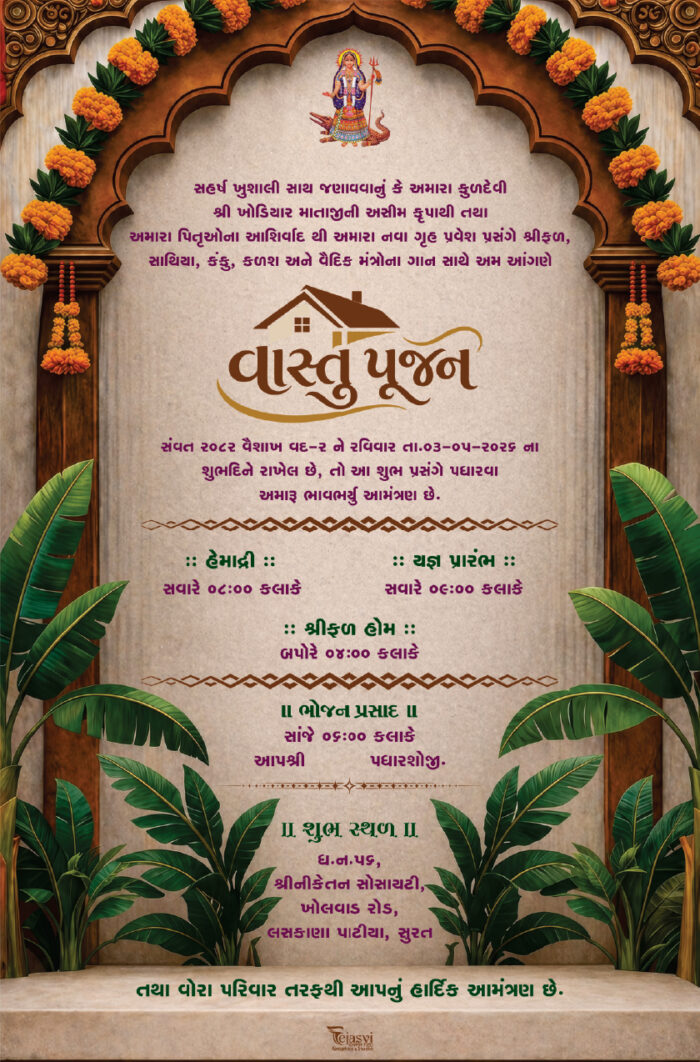 સહર્ષ ખુશાલી સાથ જણાવવાનું કે અમારા કુળદેવી
શ્રી ખોડિયાર માતાજીની અસીમ કૃપાથી તથા
અમારા પિતૃઓના આશિર્વાદ થી અમારા નવા ગૃહ પ્રવેશ પ્રસંગે શ્રીફળ,
સાથિયા, કંકુ, કળશ અને વૈદિક મંત્રોના ગાન સાથે અમ આંગણે
વાસ્તુ પૂજન
સંવત ૨૦૮૨ વૈશાખ વદ-૨ ને રવિવાર તા.૦૩-૦૫-૨૦૨૬ ના
શુભદિને રાખેલ છે, તો આ શુભ પ્રસંગે પધારવા
અમારૂ ભાવભર્યુ આમંત્રણ છે.
:: હેમાદ્રી :: :: યજ્ઞ પ્રારંભ ::
સવારે ૦૮:૦૦ કલાકે સવારે ૦૯:૦૦ કલાકે
:: શ્રીફળ હોમ ::
બપોરે ૦૪:૦૦ કલાકે
॥ ભોજન પ્રસાદ ॥
સાંજે ૦૬:૦૦ કલાકે
આપશ્રી પધારશોજી.
॥ શુભ સ્થળ ॥
ઘ.ન.૫૬,
શ્રીનીકેતન સોસાયટી,
ખોલવાડ રોડ,
લસકાણા પાટીયા, સુરત
તથા વોરા પરિવાર તરફથી આપનું હાર્દિક આમંત્રણ છે.
Tejasvi